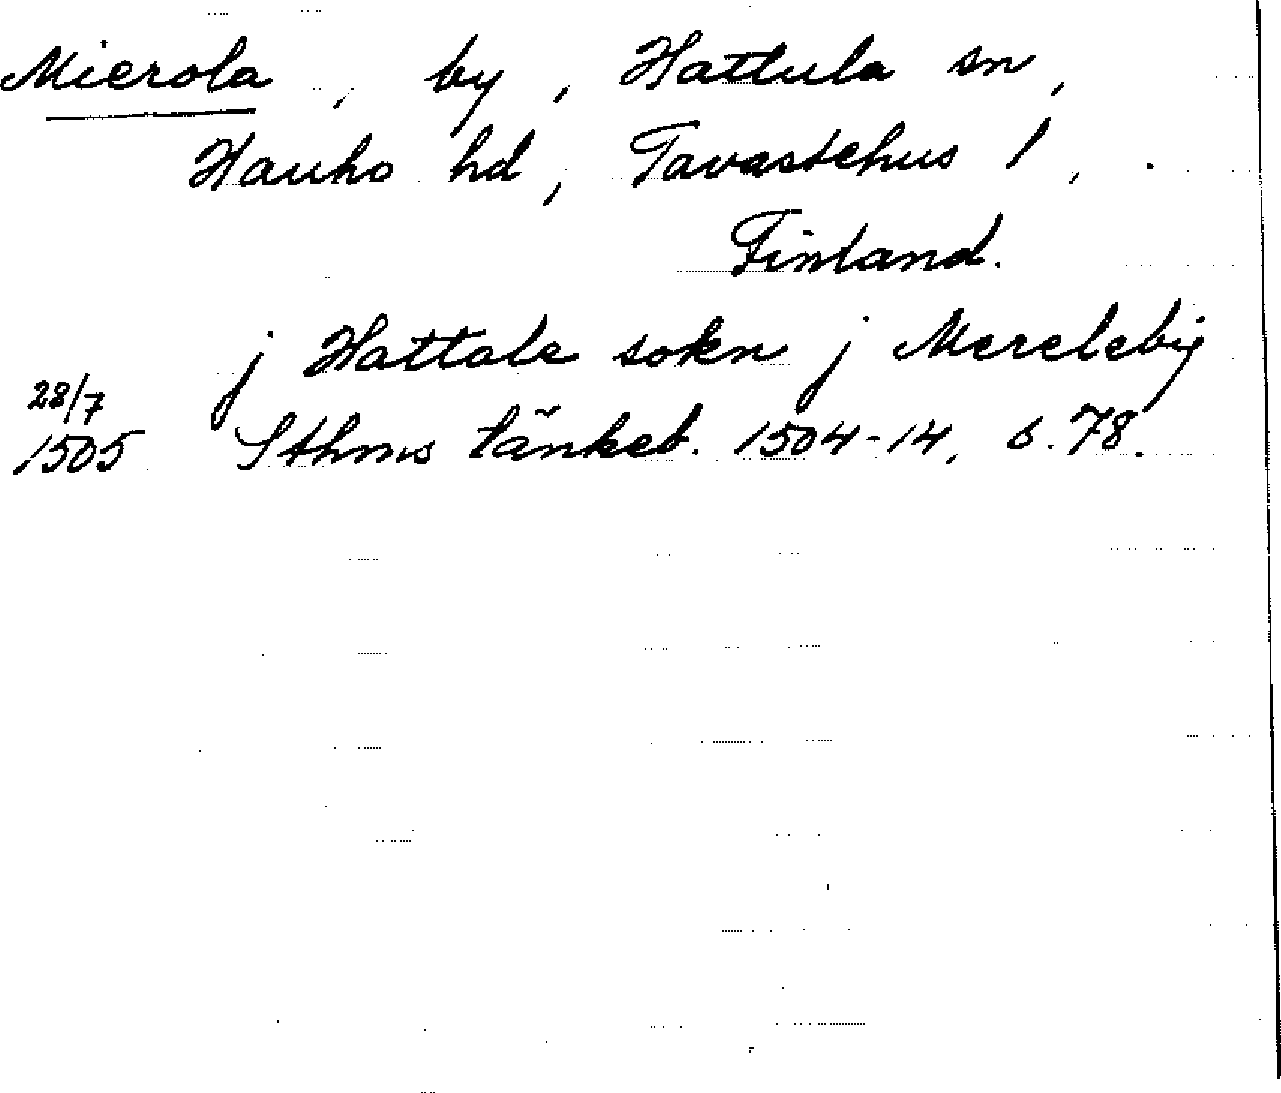 Mierola, by, Hattula sn,
Hauho hd, Tavastehus l,
Finland.
j Hattale sokn j Merelebij
28/7
1505 Sthms tänkeb. 1504-14, s. 78.